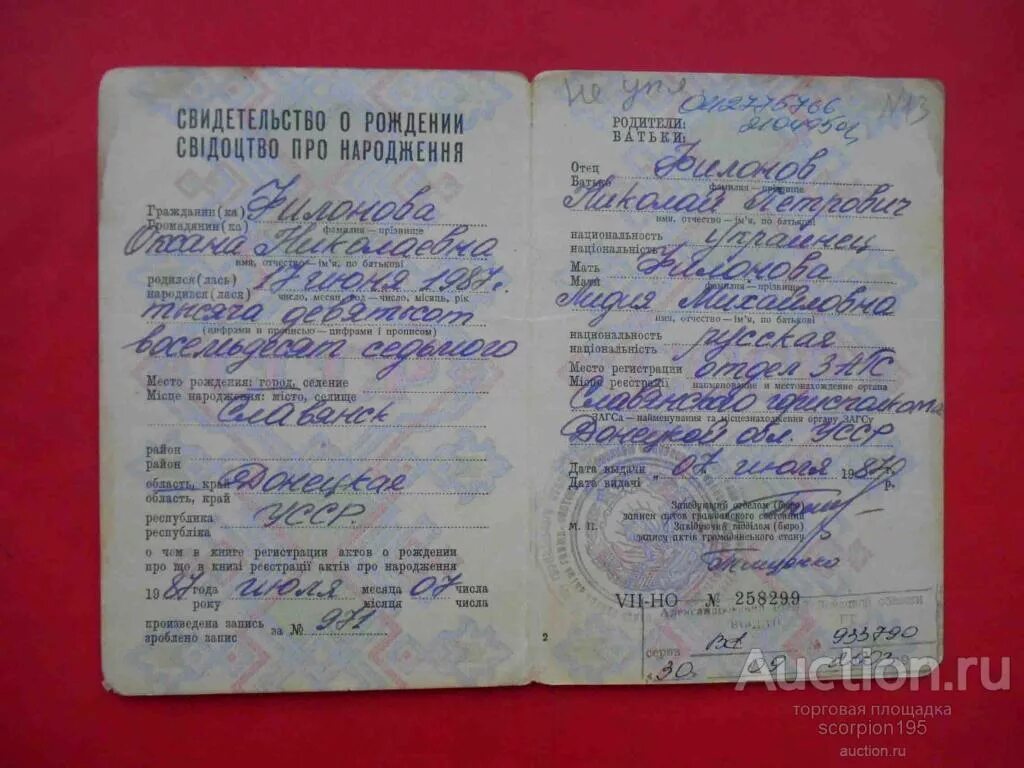 СВИДЕТЕЛЬСТВО О РОЖДЕНИИ
СВІДОЦТВО ПРО НАРОДЖЕННЯ
Гражданин(ка) Филонова
Громадянин(ка)
фамилия—прізвище
Оксана Николаевна
имя, отчество—ім'я, по батькові
родился(лась) 17 июня 1987г.
народився(лася) число, месяц, год—число, місяць, рік
тысяча девятьсот
(цифрами и прописью—цифрами і прописом)
восемьдесят седьмого
Место рождения: город, селение
Місце народження: місто, селище
Славянск
район
район
область, край Донецкая
область, край
республика УССР.
республіка
о чем в книге регистрации актов о рождении
про що в книзі реєстрації актів про народження
1987 года июля месяца 07 числа
року місяця числа
произведена запись за № 971
зроблено запис
2
не упл
0412775766
N13
РОДИТЕЛИ:
БАТЬКИ:
Отец Филонов
Батько
фамилия—прізвище
Николай Петрович
имя, отчество—ім'я, по батькові
национальность украинец
національність
Мать Филонова
Мати
фамилия—прізвище
Лидия Михайловна
имя, отчество—ім'я, по батькові
национальность русская
національність
Место регистрации отдел ЗАГС
Місце реєстрації наименование и местонахождение органа
Славянского горисполкома
ЗАГСа—найменування та місцезнаходження органу ЗАГСу
Донецкой обл. УССР
Дата выдачи „07 июля 1987 г.
Дата видачі р.
Заведующий отделом (бюро)
записи актов гражданского состояния
М. П. Завідуючий відділом (бюро)
запису актів громадянського стану
VII-НО № 258299
серов ВА 933790
30 09
Auction.ru
торговая площадка
scorpion195
auction.ru